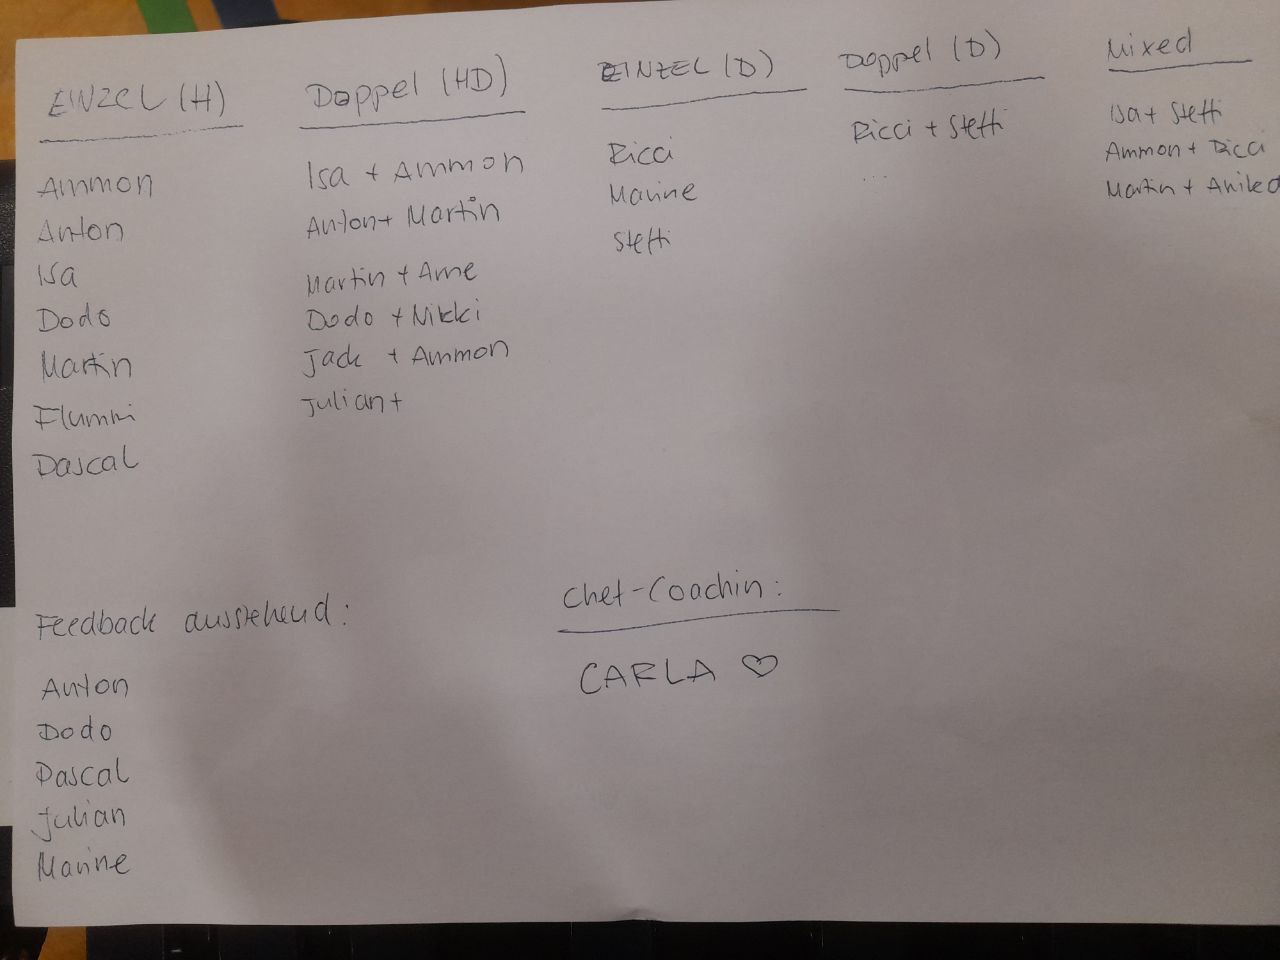 EINZEL (H)
Ammon
Anton
Isa
Dodo
Martin
Flummi
Pascal
Doppel (HD)
Isa + Ammon
Anton + Martin
Martin + Arne
Dodo + Nikki
Jack + Ammon
Julian +
EINZEL (D)
Ricci
Marine
Steffi
Doppel (D)
Ricci + Steffi
...
Mixed
Isa + Steffi
Ammon + Ricci
Martin +
Feedback ausstehend:
Anton
Dodo
Pascal
Julian
Marine
Chef-Coachin:
CARLA ♡